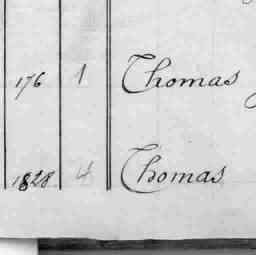 176 1 Thomas
1828 4 Thomas